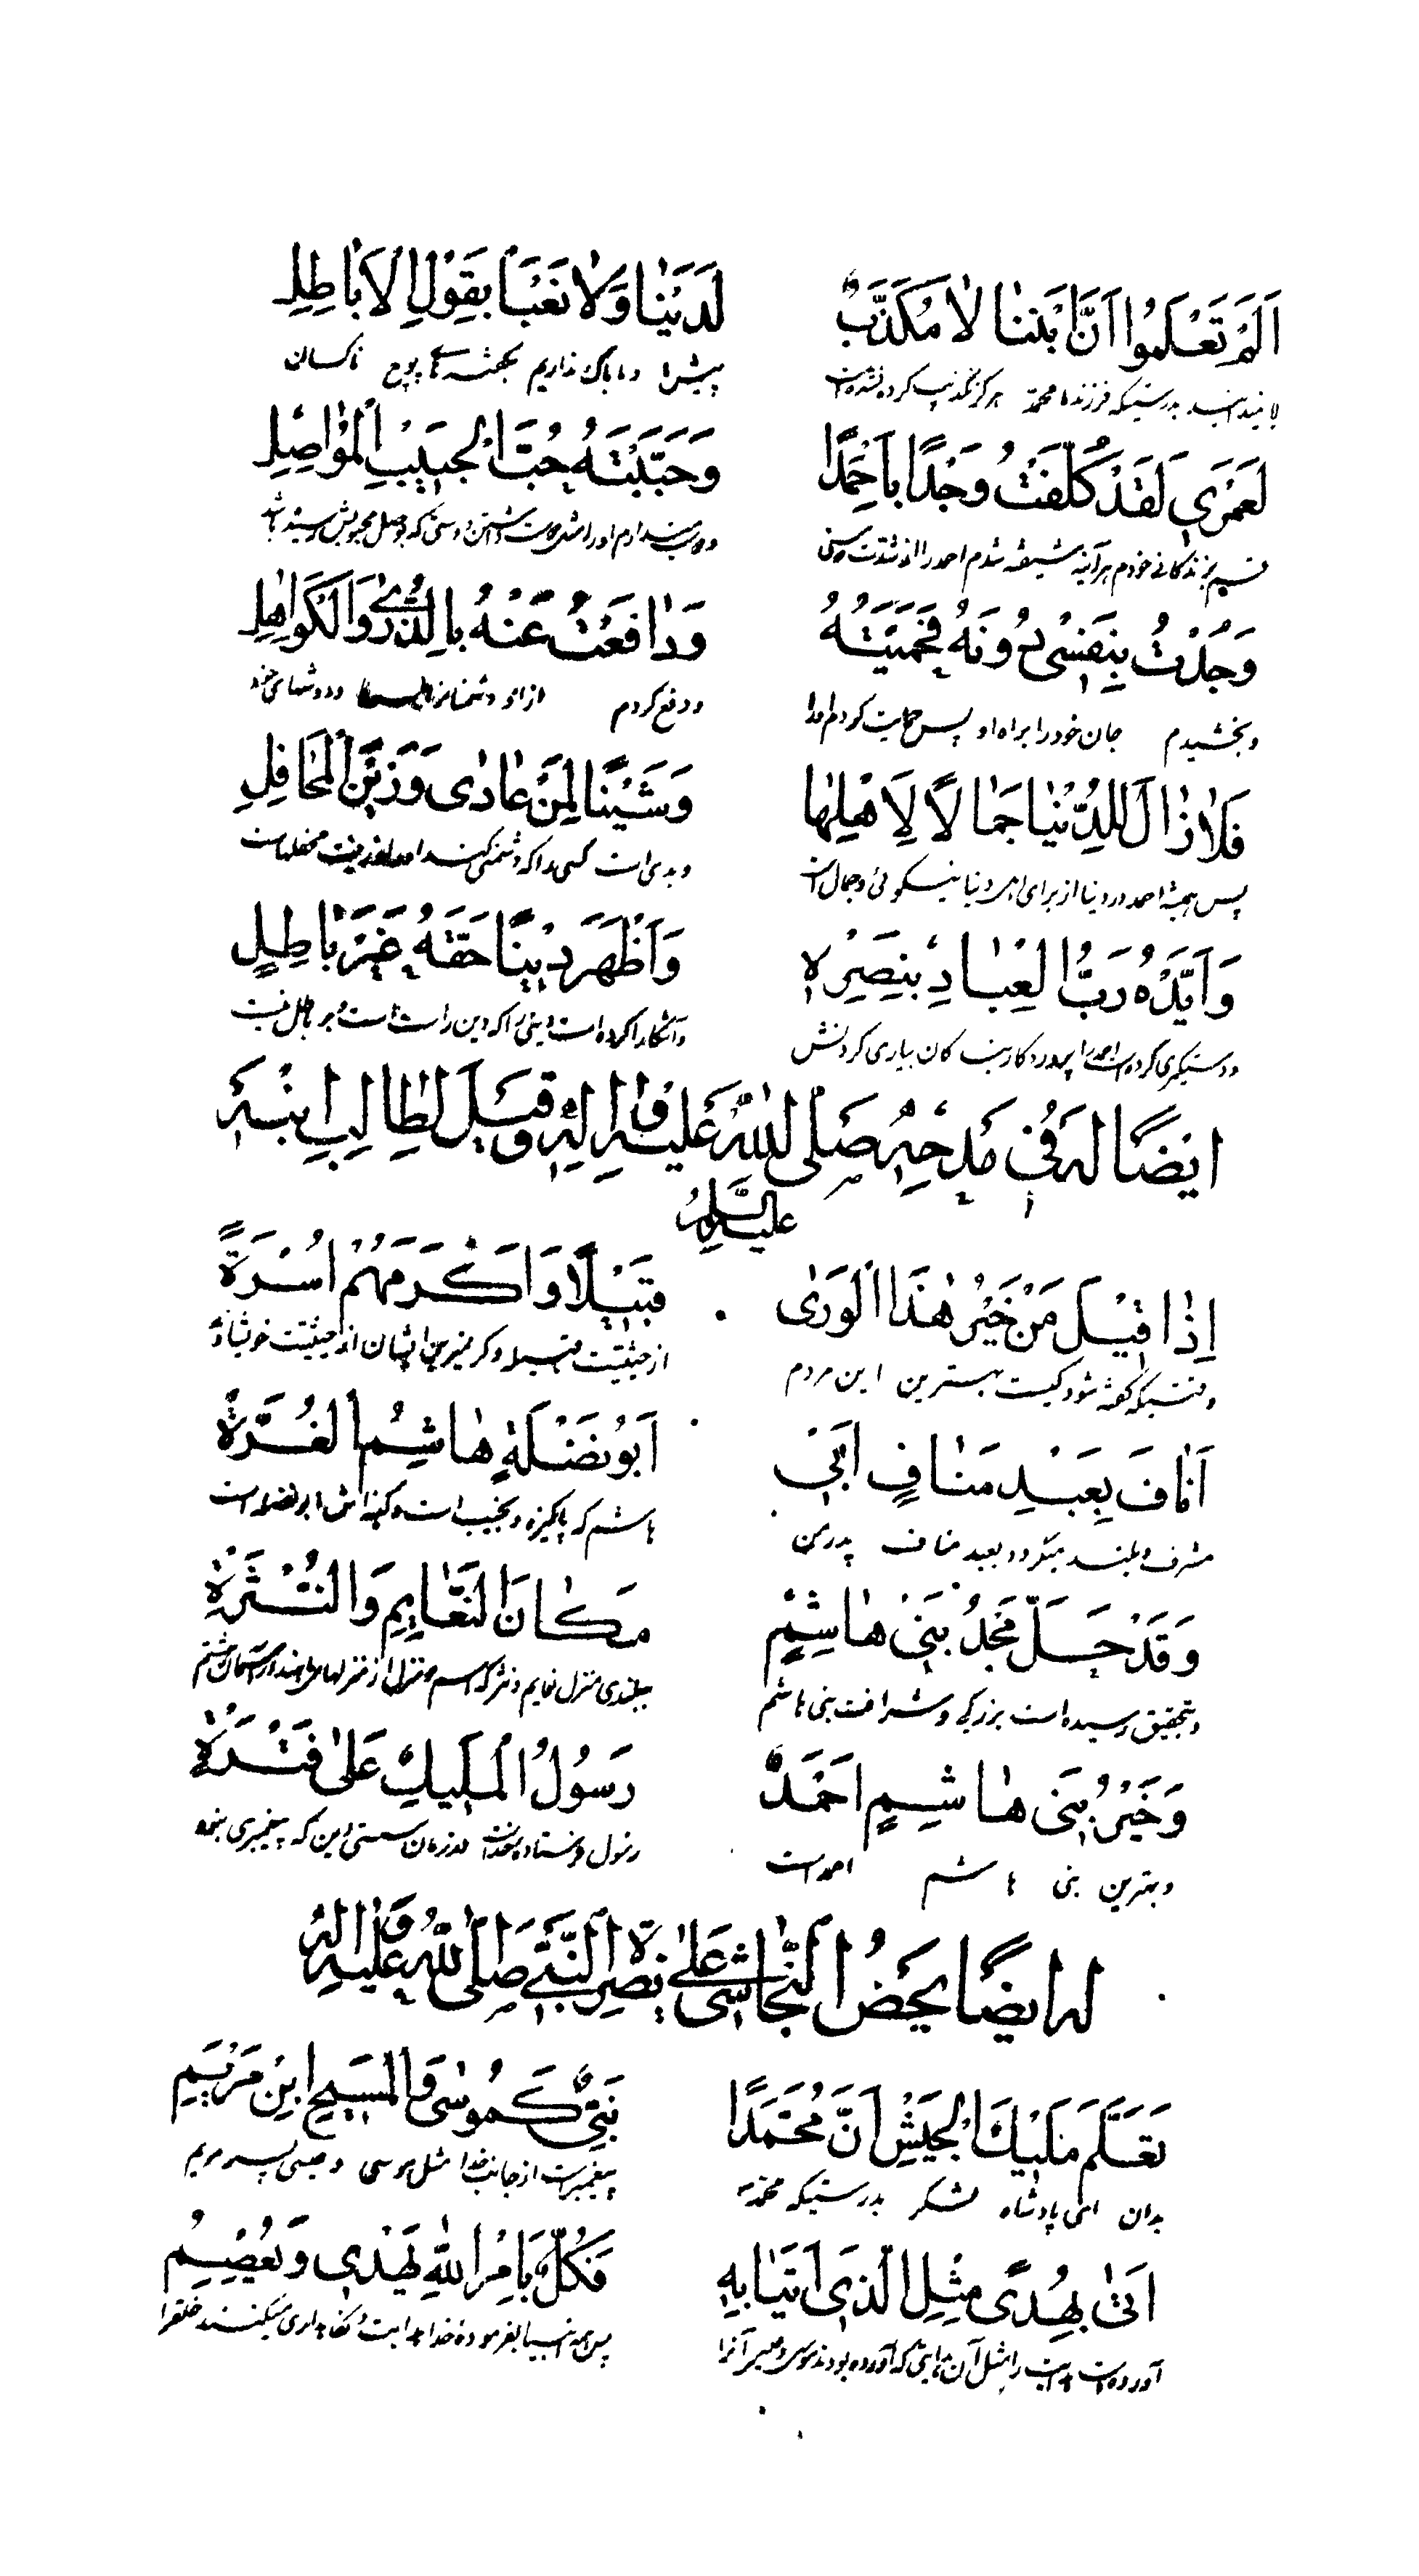 اَلَمْ تَعْلَمُوا اَنَّ ابْنَنٰا لاٰ مُكَذَّبٌ لَدَيْنٰا وَلاٰ نَعْبَأُ بِقَوْلِ الْاَبٰاطِلِ
بدرستیکه فرزند ما محمّد هرگز تکذیب کرده نشده است پیش ما و ما باک نداریم بگفته‌های پوچ ناکسان
لَعَمْرِي لَقَدْ كُلِّفْتُ وَجْدًا بِاَحْمَدٍ وَحَبَّبْتُهُ حُبَّ الْحَبِيبِ الْمُوٰاصِلِ
قسم بزندگانی خودم هرآینه شیفته شدم احمد را از شدت دوستی
وَجُدْتُ بِنَفْسِي دُونَهُ فَحَمَيْتُهُ وَدٰافَعْتُ عَنْهُ بِالذُّرىٰ وَالْكَوٰاهِلِ
و بخشیدم جان خود را براه او پس حمایت کردم او را و دفع کردم از او دشمنانرا
فَلاٰ زٰالَ لِلدُّنْيٰا جَمٰالًا لِاَهْلِهٰا وَشَيْنًا لِمَنْ عٰادىٰ وَزَيْنَ الْمَحٰافِلِ
پس همیشه احمد در دنیا از برای اهل دنیا نیکوئی و جمال است و بدی است کسی را که دشمنی کند
وَاَيَّدَهُ رَبُّ الْعِبٰادِ بِنَصْرِهِ وَاَظْهَرَ دِينًا حَقُّهُ غَيْرُ بٰاطِلِ
و دستگیری کرده است او را پروردگار بندکان بیاری کردنش و آشکارا کرده است دینی را که دین راست است و باطل نیست
ايضًا لَهُ فِي مَدْحِهِ صَلَّى اللّٰهُ عَلَيْهِ وَاٰلِهِ وَقِيلَ لِطٰالِبِ ابْنِهِ
عليه السلام
اِذٰا قِيلَ مَنْ خَيْرُ هٰذَا الْوَرىٰ قَبِيلًا وَاَكْرَمُهُمْ اُسْرَةً
وقتیکه گفته شود کیست بهترین این مردم از حیثیت قبیله و کریمترین ایشان از حیثیت خویشاوند
اَنٰافَ بِعَبْدِ مَنٰافٍ اَبِي اَبُو نَضْلَةٍ هٰاشِمُ الْغُرَّةِ
مشرف و بلند میگردد بعبد مناف پدر من هاشم که پاکیزه و نجیب است و کنیه‌اش ابو نضله است
وَقَدْ حَلَّ مَجْدُ بَنِي هٰاشِمٍ مَكٰانَ النَّعٰايِمِ وَالنَّثْرَةِ
و بتحقیق رسیده است بزرگی و شرافت بنی هاشم ببلندی منزل نعایم و نثره
وَخَيْرُ بَنِي هٰاشِمٍ اَحْمَدٌ رَسُولُ الْمَلِيكِ عَلىٰ فَتْرَةِ
و بهترین بنی هاشم احمد است رسول و فرستاده خداست در زمان سستی دین که پیغمبری نبود
له ايضًا يَحُضُّ النَّجٰاشِي عَلىٰ نُصْرَةِ النَّبِيِّ صَلَّى اللّٰهُ عَلَيْهِ وَاٰلِهِ
تَعَلَّمْ مَلِيكَ الْجَيْشِ اَنَّ مُحَمَّدًا نَبِيٌّ كَمُوسىٰ وَالْمَسِيحِ ابْنِ مَرْيَمِ
بدان ای پادشاه لشکر بدرستیکه محمّد پیغمبرست از جانب خدا مثل موسی و عیسی پسر مریم
اَتىٰ بِهُدًى مِثْلِ الَّذِي اَتَيٰا بِهِ فَكُلٌّ بِاَمْرِ اللّٰهِ يَهْدِي وَيَعْصِمُ
آورده است هدایت را مثل آن هدایتی که آورده بودند موسی و عیسی آنرا پس همه انبیا بفرموده خدا هدایت و نگاهداری میکنند خلقرا